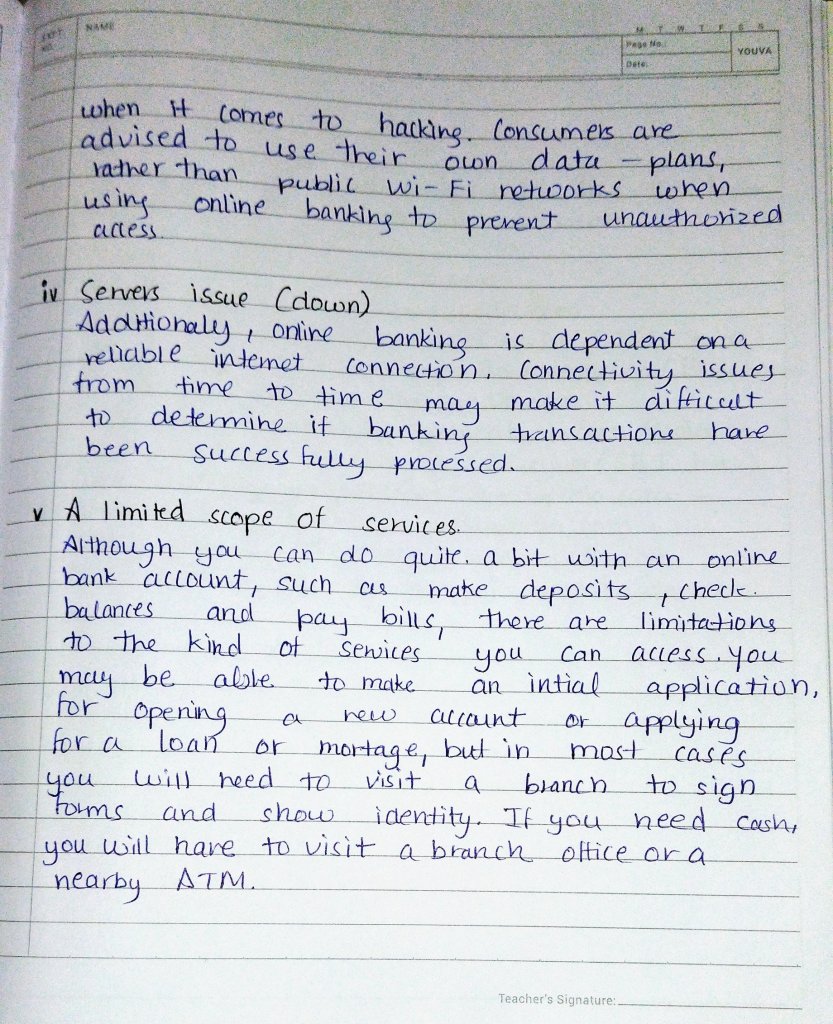 EXPT. NO.
NAME
M T W T F S S
Page No.:
YOUVA
Date:
when it comes to hacking. Consumers are
advised to use their own data - plans,
rather than public Wi-Fi networks when
using online banking to prevent unauthorized
access
iv Servers issue (down)
Additionaly, online banking is dependent on a
reliable internet connection. Connectivity issues
from time to time may make it difficult
to determine if banking transactions have
been successfully processed.
v A limited scope of services.
Although you can do quite. a bit with an online
bank account, such as make deposits, check.
balances and pay bills, there are limitations
to the kind of services you can access. You
may be able to make an intial application,
for opening a new account or applying
for a loan or mortage, but in most cases
you will need to visit a branch to sign
forms and show identity. If you need cash,
you will have to visit a branch office or a
nearby ATM.
Teacher's Signature: